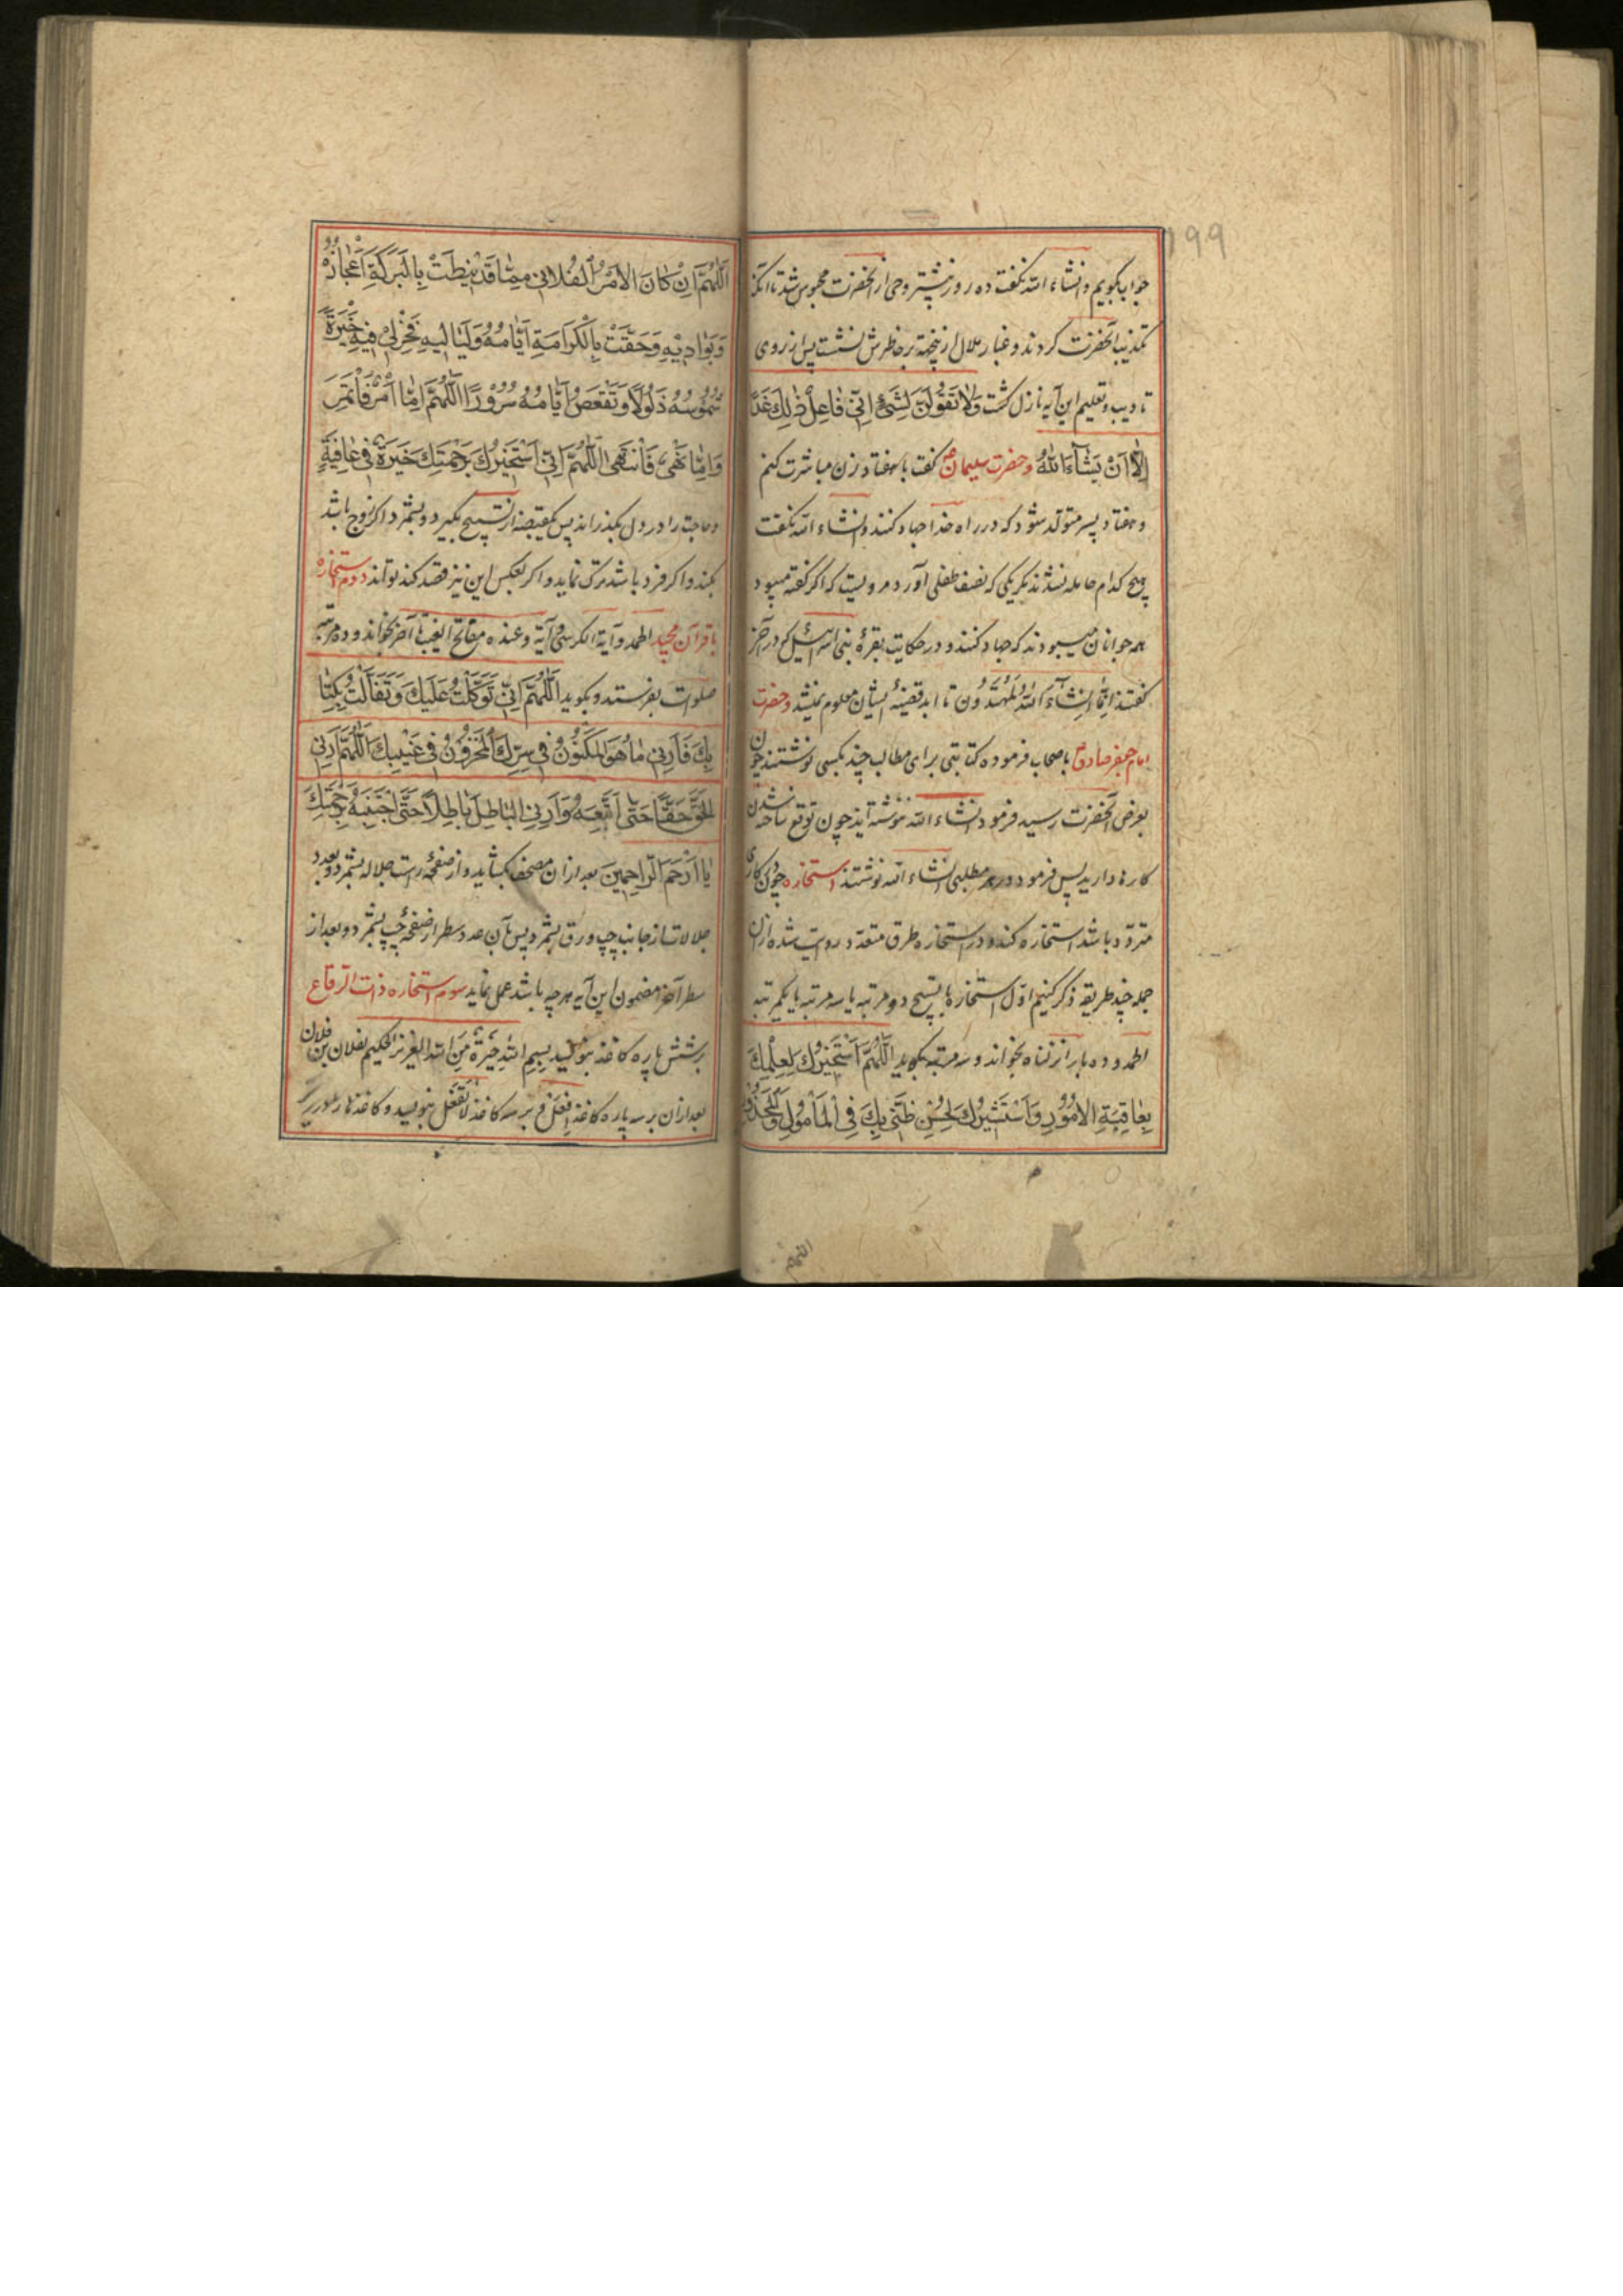 ۱۹۹
جواب بگویم و انشاء الله نگفت ده روز بیشتر وحی از آنحضرت محبوس شد تا آنکه
تکذیب آنحضرت کردند و غبار ملال ازینجهة بر خاطرش نشست پس از روی
تادیب و تعلیم این آیه نازل گشت وَلا تَقُولَنَّ لِشَیْءٍ اِنّی فاعِلٌ ذٰلِكَ غَدًا
اِلّا اَنْ یَشآءَ اللهُ و حضرت سلیمان گفت با هفتاد زن مباشرت کنم
و هفتاد پسر متولد شود که در راه خدا جهاد کنند و انشاء الله نگفت
هیچ کدام حامله نشدند مگر یکی که نصف طفلی آورد مرویست که اگر گفته میبود
همه جوانان میبودند که جهاد کنند و در حکایت بقرهٔ بنی اسرائیل که در آخر
گفتند اِنّا اِنشآءَ اللهُ لَمُهْتَدُون تا ابد قضیهٔ ایشان معلوم نمیشد و حضرت
امام جعفر صادق باصحاب فرموده کتابتی برای مطالب چند بکسی نوشتند چون
بعرض آنحضرت رسید فرمود انشاء الله ننوشته‌اید چون توقع ساخته شدن
کارها دارید پس فرمود در هر مطلبی انشاء الله نوشتند استخاره چون در کاری
متردد باشد استخاره کند و در استخاره طرق متعدد روایت شده ازان
جمله چند طریقه ذکر کنیم اوّل استخاره با تسبیح دو مرتبه یا سه مرتبه یا یکمرتبه
الحمد و ده بار انزلناه بخواند و سه مرتبه بگوید اَللّٰهُمَّ اِنّی اَسْتَخیرُكَ لِعِلْمِكَ
بِعاقِبَةِ الاُمُورِ وَاَسْتَشیرُكَ لِحُسْنِ ظَنّی بِكَ فِی الْمَأمُولِ وَالْمَحْذُورِ
اللهم
اَللّٰهُمَّ اِنْ كانَ الاَمْرُ الْفُلانی مِمّا قَدْ نیطَتْ بِالْبَرَكَةِ اَعْجازُهُ
وَبَوادیهِ وَحَفَّتْ بِالْكَرامَةِ اَیّامُهُ وَلَیالیهِ فَخِرْلی فیهِ خِیَرَةً
شُمُوسُهُ ذَلُولًا وَتَقْعَصُ اَیّامُهُ سُرُورًا اَللّٰهُمَّ اِمّا اَمْرٌ فَاْتَمِرَ
وَاِمّا نَهْیٌ فَاَنْتَهی اَللّٰهُمَّ اِنّی اَسْتَخیرُكَ بِرَحْمَتِكَ خِیَرَةً فی عافِیَةٍ
و حاجت را در دل بگذراند پس یکقبضه از تسبیح بگیرد و بشمرد اگر زوج باشد
بکند و اگر فرد باشد ترک نماید و اگر بعکس این نیز قصد کند تواند دوم استخاره
با قرآن مجید الحمد و آیة الکرسی و آیة و عنده مفاتح الغیب تا آخر بخواند و ده مرتبه
صلوات بفرستد و بگوید اَللّٰهُمَّ اِنّی تَوَكَّلْتُ عَلَیْكَ وَتَفَأَّلْتُ بِكِتا
بِكَ فَاَرِنی ما هُوَ الْمَكْنُونُ فی سِرِّكَ الْمَخْزُونُ فی غَیْبِكَ اَللّٰهُمَّ اَرِنِی
الْحَقَّ حَقًّا حَتّی اَتَّبِعَهُ وَاَرِنِی الْباطِلَ باطِلًا حَتّی اَجْتَنِبَهُ بِرَحْمَتِكَ
یا اَرْحَمَ الرّاحِمینَ بعد ازان مصحف بگشاید و از صفحهٔ راست جلاله بشمرد و بعدد
جلالات از جانب چپ ورق بشمرد پس بآن عدد سطر از صفحهٔ چپ بشمرد و بعد از
سطر آخر مضمون این آیه هر چه باشد عمل نماید سوم استخاره ذات الرقاع
بر شش پاره کاغذ بنویسید بِسمِ اللهِ خِیَرَةٌ مِنَ اللهِ العزیز الحکیم لفلان بن فلان
بعد ازان بر سه پاره کاغذ اِفعَلْ و بر سه کاغذ لا تَفْعَل بنویسید و کاغذها را در زیر